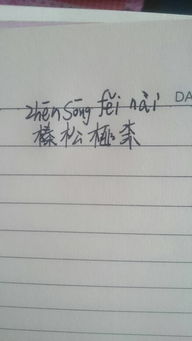 zhēn sōng fěi nài DA
榛松榧柰